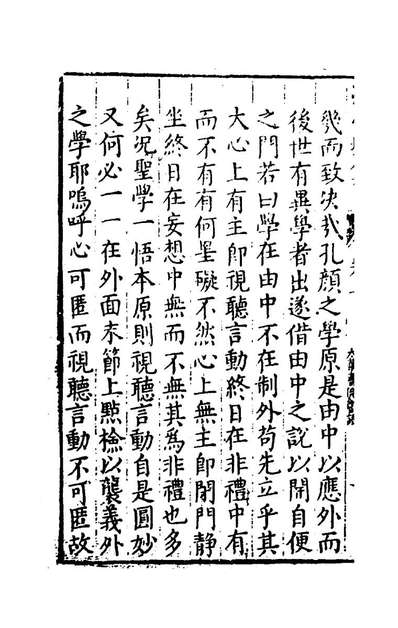 幾而致決哉孔顏之學原是由中以應外而
後世有異學者出遂借由中之說以開自便
之門若曰學在由中不在制外苟先立乎其
大心上有主即視聽言動終日在非禮中有
而不有有何罣礙不然心上無主即閉門靜
坐終日在妄想中無而不無其為非禮也多
矣況聖學一悟本原則視聽言動自是圓妙
又何必一一在外面末節上點檢以襲義外
之學耶嗚呼心可匿而視聽言動不可匿故